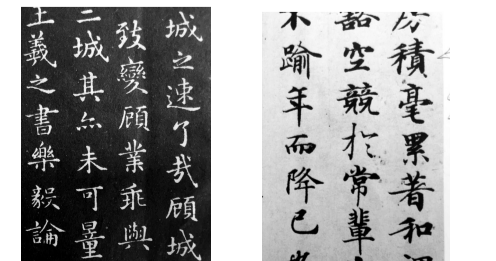 城之速了哉顧城
致變顧業乖與
二城其亦未可量
王羲之書樂毅論
房積毫累著和
豁空競於常輩
不踰年而降已